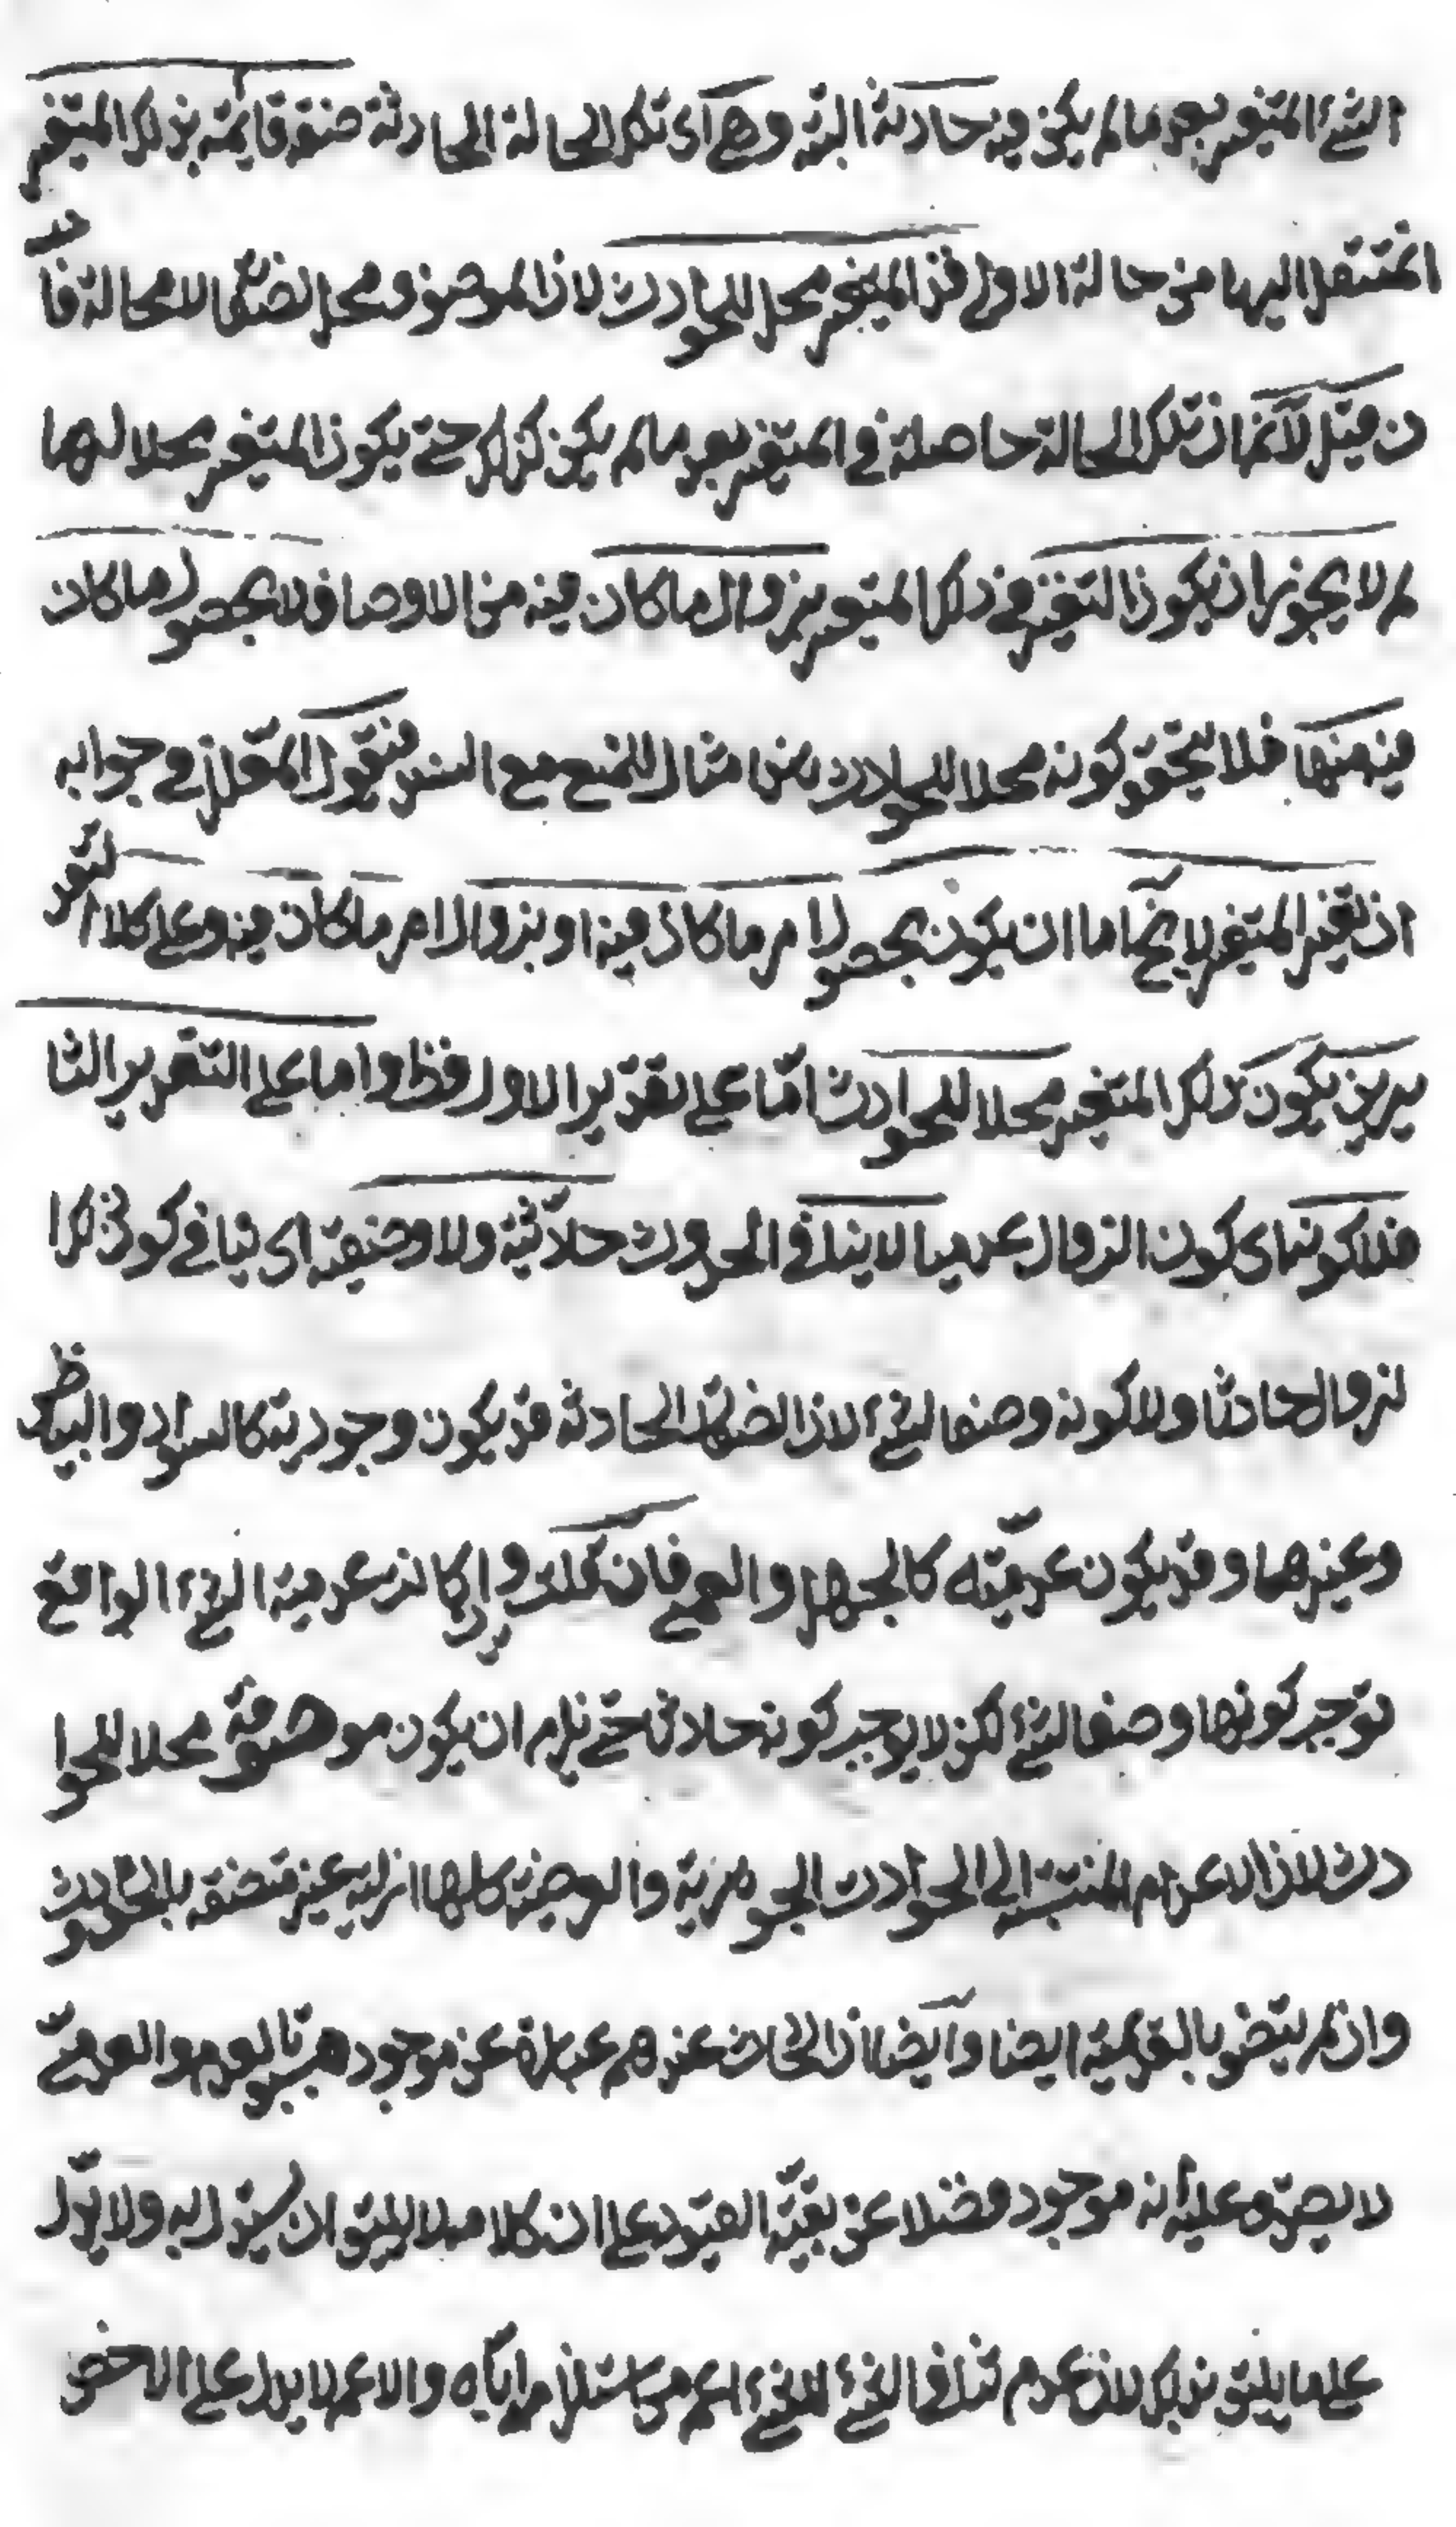 الشئ المتغير بعد ما لم يكن فيه حادثة البتة وهي اى تلك الحالة الحادثة صفة قائمة بذلك المتغير
المنتقل اليها من حالة الاولى فذا المتغير محل للحوادث لان الموصوف محل لصفته لا محالة فا
ن قيل لا نم ان تلك الحالة حاصلة في المتغير بعد ما لم يكن كذلك حتى يكون المتغير محلا لها
لم لا يجوز ان يكون التغير في ذلك المتغير بزوال ما كان فيه من الاوصاف لا بحصول ما كان
فيه منها فلا يتحقق كونه محلا للحوادث من امثال المنع مع السند فنقول المعلل في جوابه
ان تغير المتغير لا يخ اما ان يكون بحصول امر ما كان فيه او بزوال امر ما كان فيه وعلى كلا التقد
يرين يكون ذلك المتغير محلا للحوادث امّا على تقدير الاول فظ واما على التقرير الثا
فلا كونه اى كون الزوال عدميا لا ينافي الحدوث حادثية ولا وصفيته اى ينافي كون ذلك ا
لزوال حادثا ولا كونه وصفا لشئ لان الصفة الحادثة قد يكون وجودية كالسواد والبياض
وغيرها وقد يكون عدميّته كالجهل والعمى فان قلت وان كانت عدمية الشئ الواقع
توجب كونها وصفا لشئ لكن لا يوجب كونه حادثا حتى يلزم ان يكون موصوفه محلا للحوا
دث لان الاعدام المنتسبة الى الحوادث الجوهرية والعرضية كلها ازلية غير متصفة بالحدوث
وان لم يتصف بالقديمية ايضا وايضا ان الحادث عندهم عبارة عن موجود مسبوق بالعدم والعدمى
لا يصدق عليه انه موجود فضلا عن بقيّة القيود على ان كلامه لا يليق ان يستدل به ولا يدل
على ما يليق بذلك لان عدم تنافى الشئ للشئ اعم من استلزامه ايّاه والاعم لا يدل على الاخص